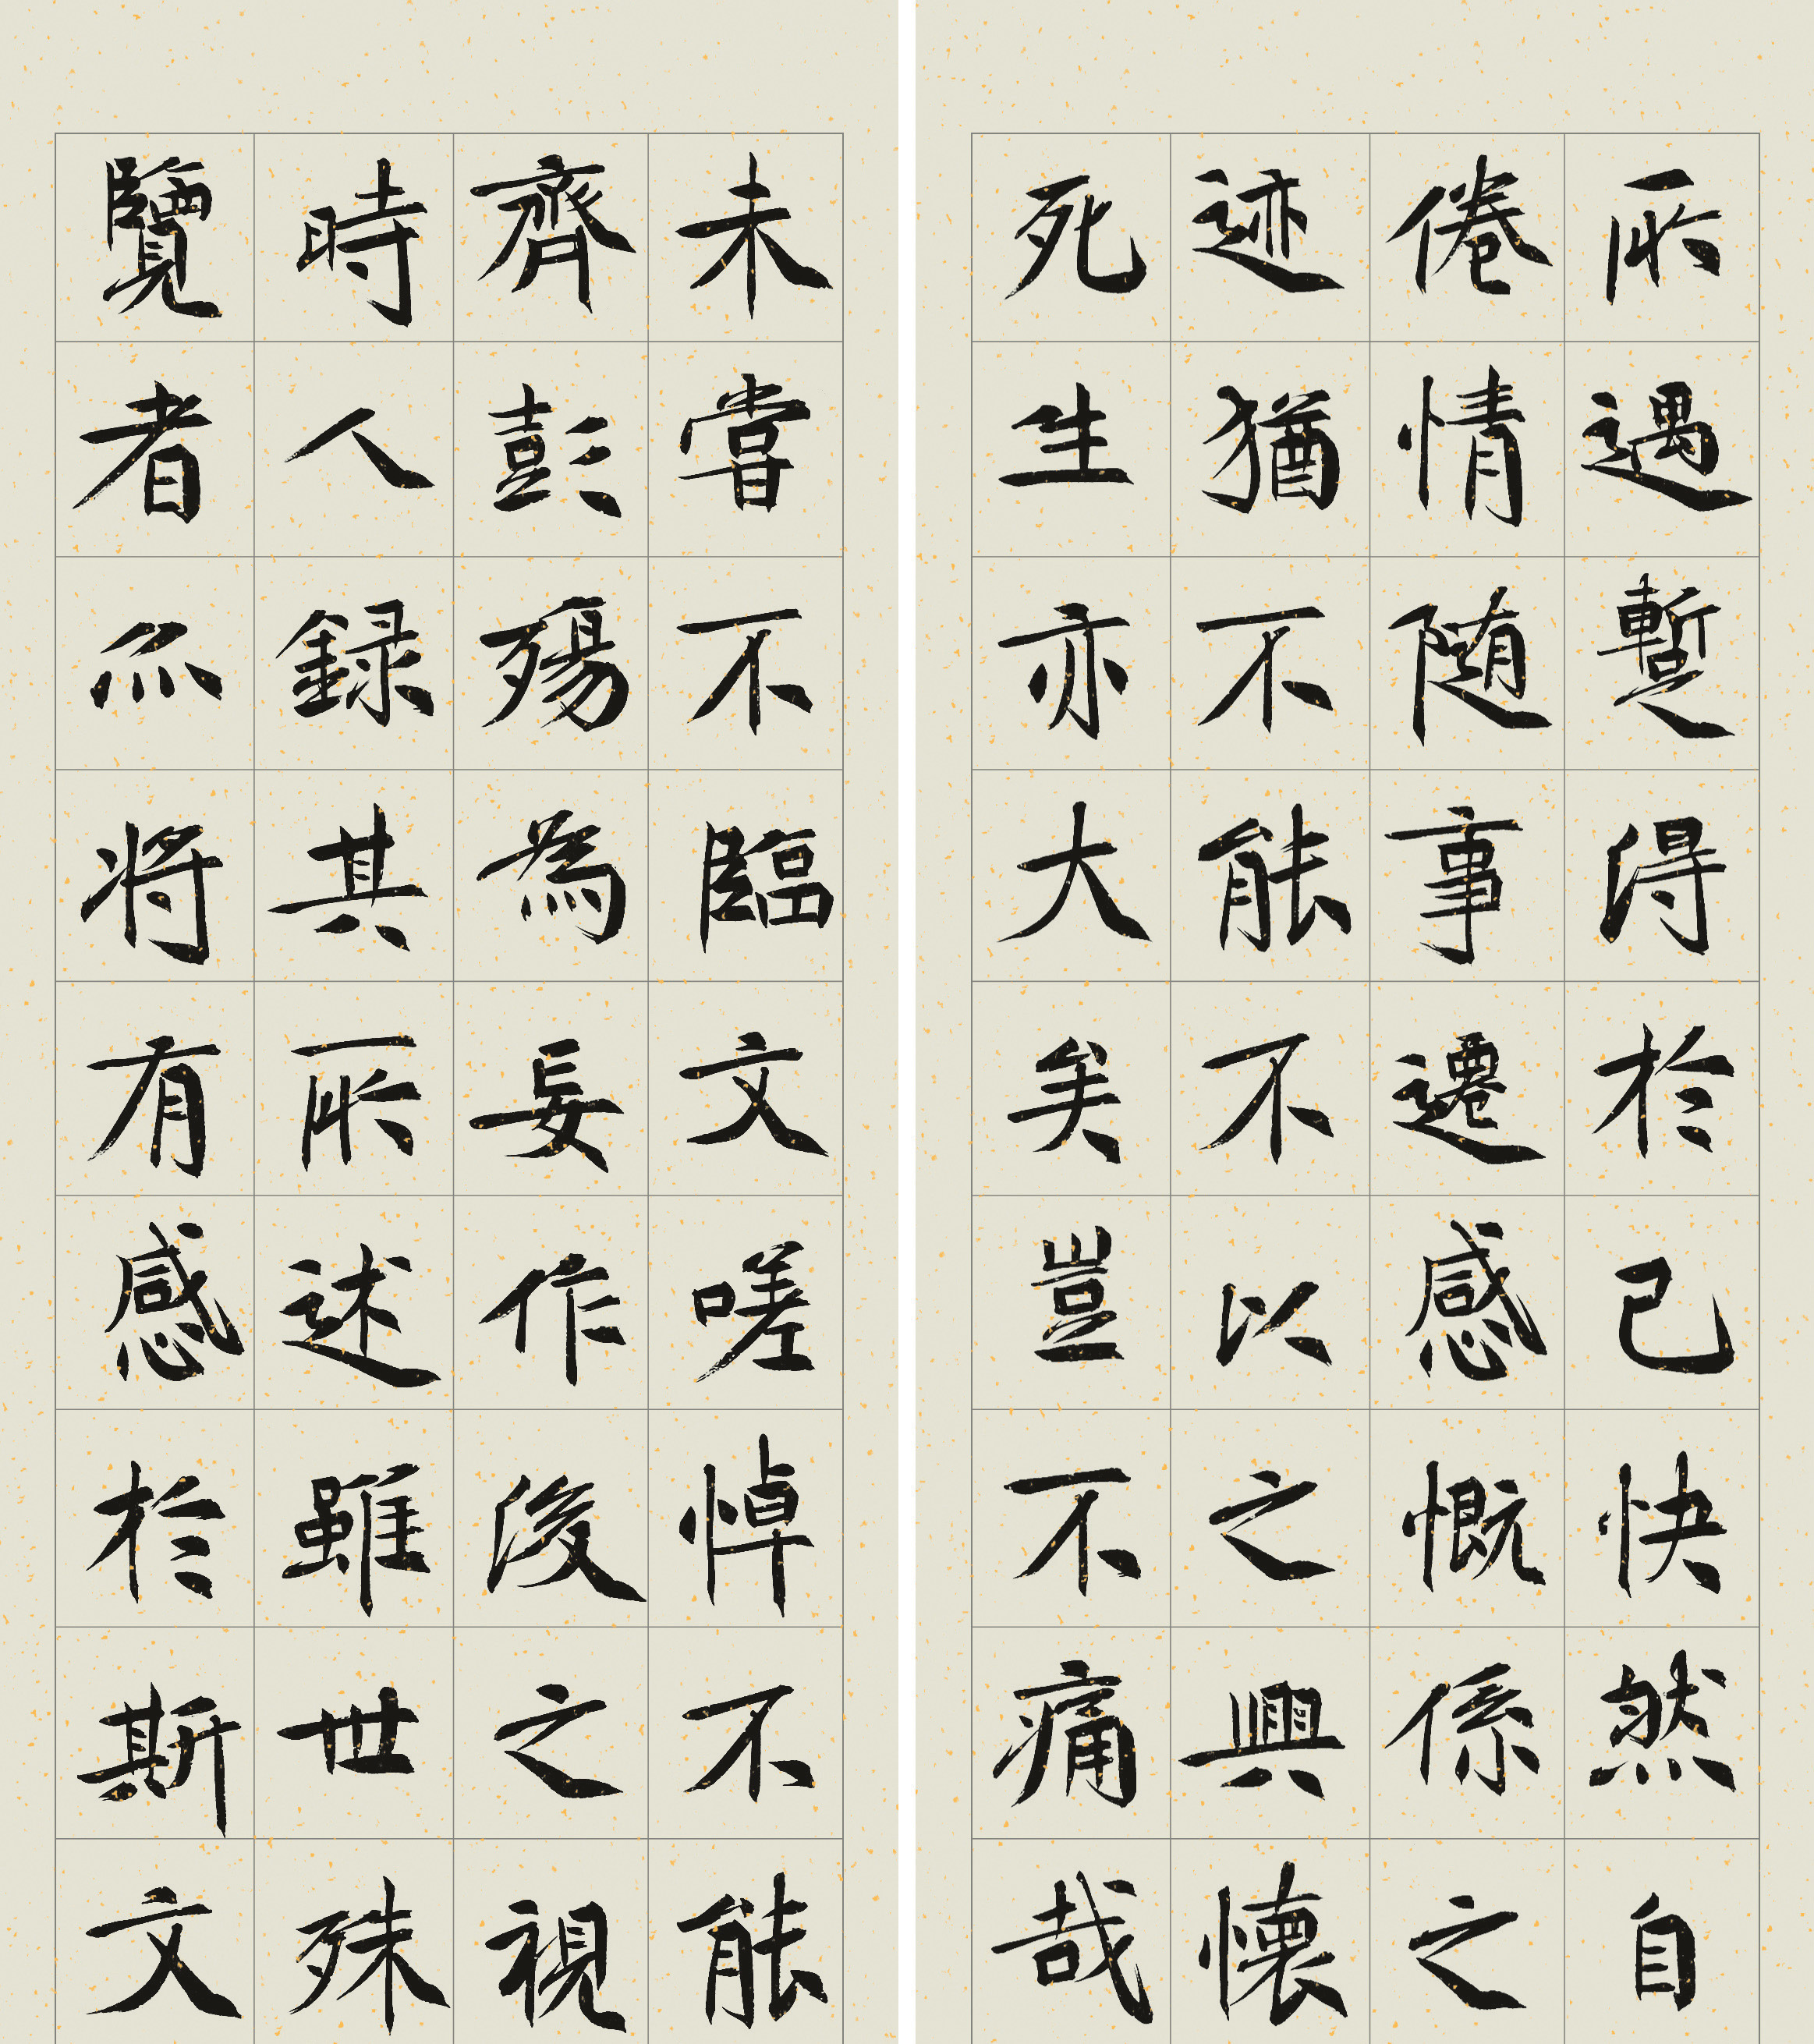 所遇蹔得於己快然自
倦情随事遷感慨係之
迹猶不能不以之興懷
死生亦大矣豈不痛哉
未嘗不臨文嗟悼不能
齊彭殤為妄作後之視
時人録其所述雖世殊
覽者亦将有感於斯文